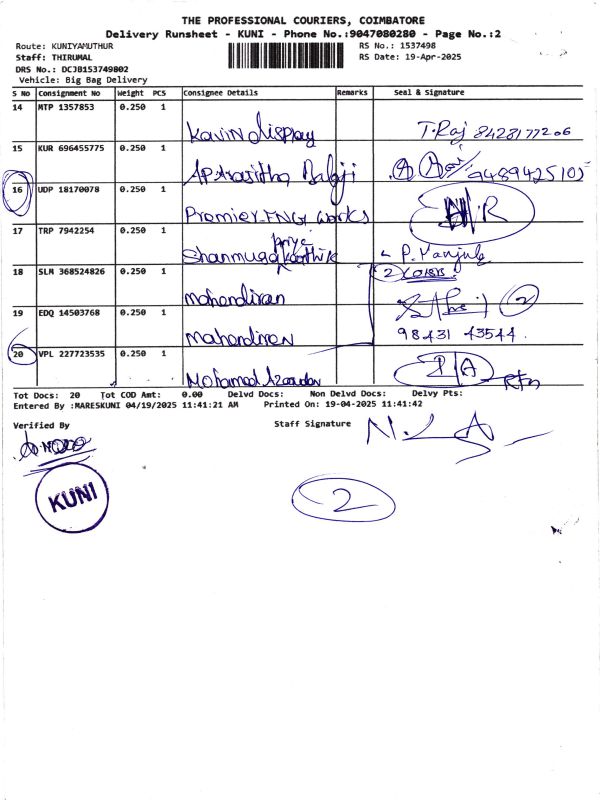 THE PROFESSIONAL COURIERS, COIMBATORE
Delivery Runsheet - KUNI - Phone No.:9047080280 - Page No.:2
Route: KUNIYAMUTHUR
RS No.: 1537498
Staff: THIRUMAL
RS Date: 19-Apr-2025
DRS No.: DCJB153749802
Vehicle: Big Bag Delivery
S No Consignment No Weight PCS Consignee Details Remarks Seal & Signature
14 MTP 1357853 0.250 1
Kavin display T.Raj 8428177206
15 KUR 696455775 0.250 1
Balaji 9489425105
16 UDP 18170078 0.250 1
Premier ENGg works R
17 TRP 7942254 0.250 1
priya
Shanmuga Karthik P. Manjula
18 SLM 368524826 0.250 1
2
mahendiran
19 EDQ 14503768 0.250 1
2
mahendiren 98431 43544.
20 VPL 227723535 0.250 1
Mohamed
Tot Docs: 20 Tot COD Amt: 0.00 Delvd Docs: Non Delvd Docs: Delvy Pts:
Entered By :MARESKUNI 04/19/2025 11:41:21 AM Printed On: 19-04-2025 11:41:42
Verified By Staff Signature
KUNI
2